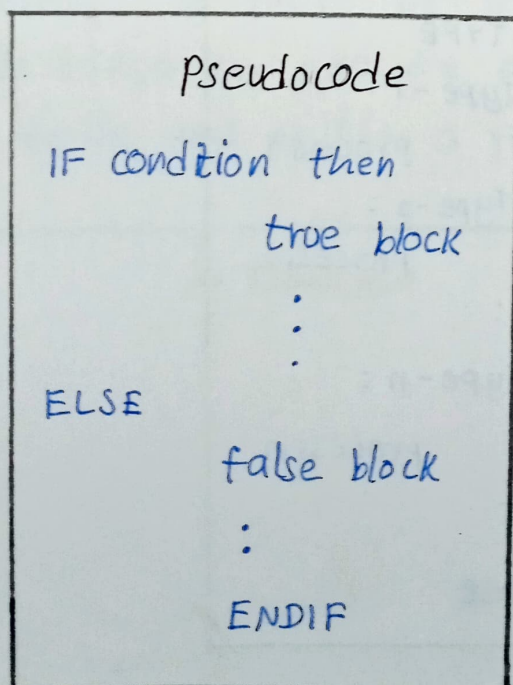 Pseudocode
IF condition then
true block
.
.
.
ELSE
false block
:
ENDIF